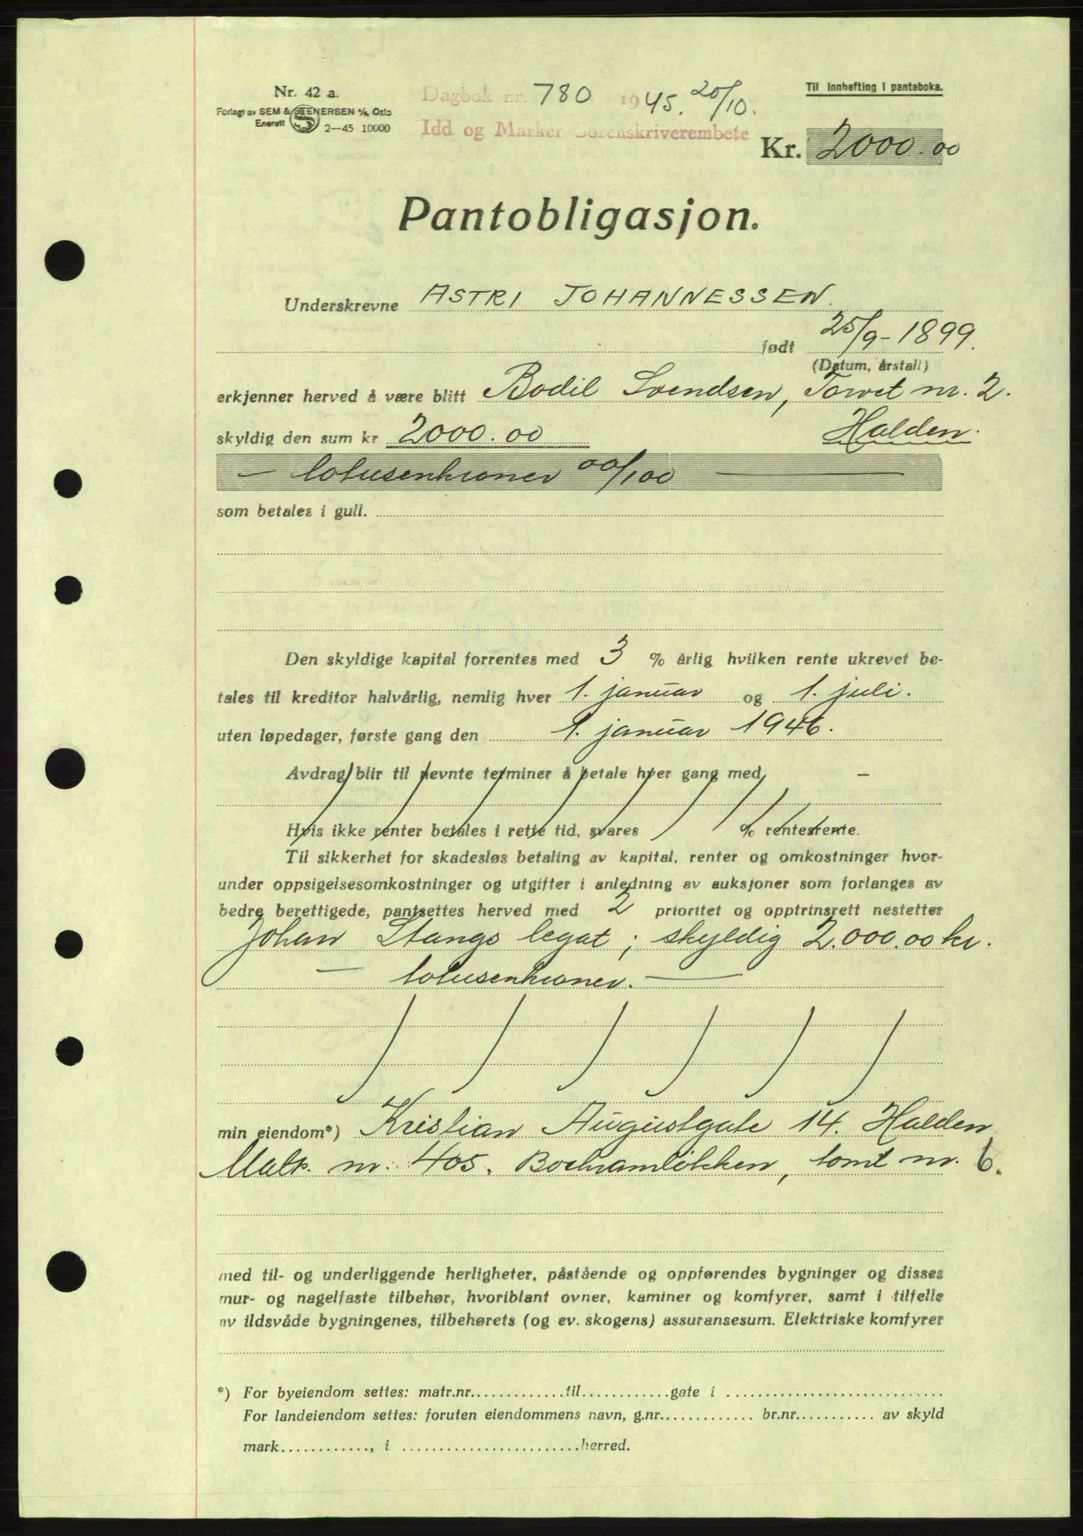 Nr. 42 a.
Forlagt av SEM & STENERSEN A/S, Oslo
Enerett 2—45 10000
Dagbok nr. 780 1945. 20/10.
Idd og Marker Sorenskriverembete
Til innhefting i panteboka.
Kr. 2000.00
Pantobligasjon.
Underskrevne ASTRI JOHANNESSEN.
født 25/9-1899.
(Datum, årstall)
erkjenner herved å være blitt Bodil Svendsen, Torvet nr. 2.
skyldig den sum kr 2000.00 Halden.
— totusenkroner 00/100 —
som betales i gull.
Den skyldige kapital forrentes med 3 % årlig hvilken rente ukrevet be-
tales til kreditor halvårlig, nemlig hver 1. januar og 1. juli.
uten løpedager, første gang den 1. januar 1946.
Avdrag blir til nevnte terminer å betale hver gang med —
Hvis ikke renter betales i rette tid, svares % rentesrente.
Til sikkerhet for skadesløs betaling av kapital, renter og omkostninger hvor-
under oppsigelsesomkostninger og utgifter i anledning av auksjoner som forlanges av
bedre berettigede, pantsettes herved med 2 prioritet og opptrinsrett nestetter
Johan Stangs legat; skyldig 2.000.00 kr.
— totusenkroner. —
min eiendom*) Kristian Augustgate 14. Halden
Matr. nr. 405. tomt nr. 6.
med til- og underliggende herligheter, påstående og oppførendes bygninger og disses
mur- og nagelfaste tilbehør, hvoriblant ovner, kaminer og komfyrer, samt i tilfelle
av ildsvåde bygningenes, tilbehørets (og ev. skogens) assuransesum. Elektriske komfyrer
*) For byeiendom settes: matr.nr..............til............gate i ............................
For landeiendom settes: foruten eiendommens navn, g.nr............. br.nr........... av skyld
mark............, i ........................herred.